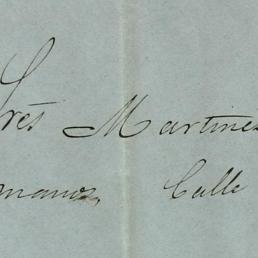 Sres Martines
manos, Calle